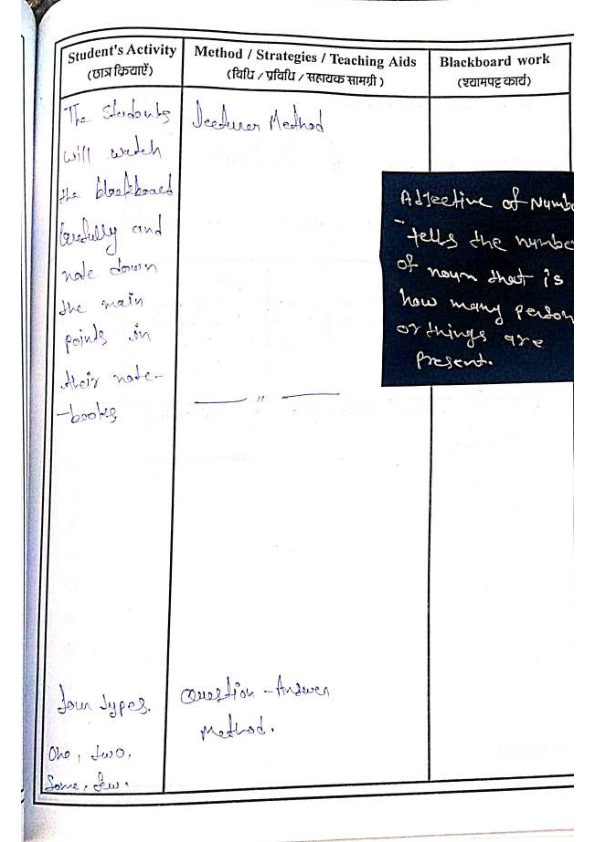 Student's Activity
(छात्र क्रियाऐं)
Method / Strategies / Teaching Aids
(विधि / प्रविधि / सहायक सामग्री)
Blackboard work
(श्यामपट्ट कार्य)
The Students
will watch
the blackboard
Carefully and
note down
the main
points in
their note-
-books
Lecturer Method
Adjective of Numbe
- tells the numbe
of noun that is
how many person
or things are
Present.
— " —
four types.
One, two,
Some, few.
Question - Answer
Method.